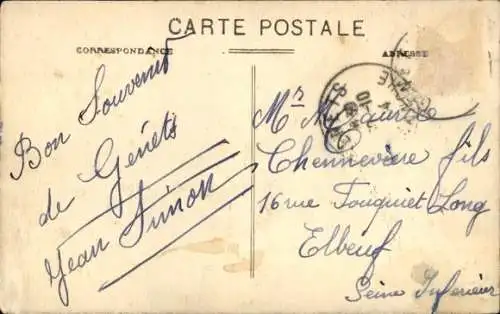 CARTE POSTALE
CORRESPONDANCE
ADRESSE
Bon Souvenir
de Genêts
Jean Simon
Mr Maurice
Chennevière fils
16 rue Fouquier Long
Elbeuf
Seine Inférieure